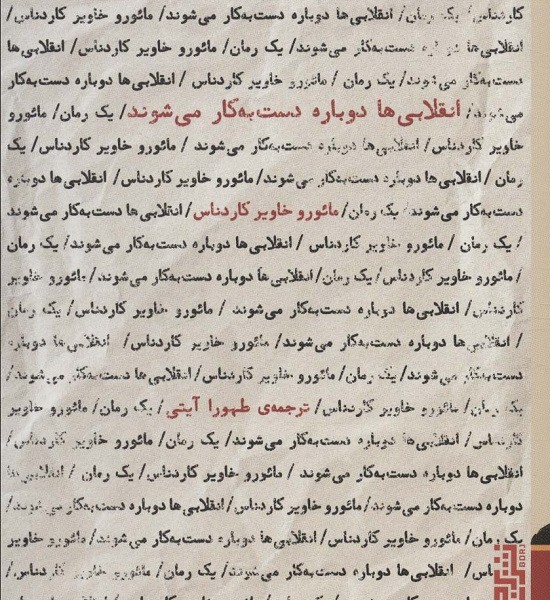 کاردناس/ یک رمان/ انقلابی‌ها دوباره دست‌به‌کار می‌شوند/ مائورو خاویر کاردناس/
انقلابی‌ها دوباره دست‌به‌کار می‌شوند/ یک رمان/ مائورو خاویر کاردناس/ انقلابی‌ها
دست‌به‌کار می‌شوند/ یک رمان / مائورو خاویر کاردناس / انقلابی‌ها دوباره دست‌به‌کار
می‌شوند/ انقلابی‌ها دوباره دست‌به‌کار می‌شوند/ یک رمان/ مائورو
خاویر کاردناس/ انقلابی‌ها دوباره دست‌به‌کار می‌شوند / مائورو خاویر کاردناس/ یک
رمان / انقلابی‌ها دوباره دست‌به‌کار می‌شوند/ مائورو خاویر کاردناس/ انقلابی‌ها دوباره
دست‌به‌کار می‌شوند/ یک رمان/ مائورو خاویر کاردناس/ انقلابی‌ها دست‌به‌کار می‌شوند
/ یک رمان / مائورو خاویر کاردناس / انقلابی‌ها دوباره دست‌به‌کار می‌شوند/ یک رمان
/ مائورو خاویر کاردناس/ یک رمان/ انقلابی‌ها دوباره دست‌به‌کار می‌شوند/ مائورو خاویر
کاردناس/ انقلابی‌ها دوباره دست‌به‌کار می‌شوند / مائورو خاویر کاردناس/ یک رمان
/ انقلابی‌ها دوباره دست‌به‌کار می‌شوند/ مائورو خاویر کاردناس/ انقلابی‌ها دوباره
دست‌به‌کار می‌شوند/ یک رمان/ مائورو خاویر کاردناس/ انقلابی‌ها دست‌به‌کار می‌شوند/
یک رمان/ مائورو خاویر کاردناس/ ترجمه‌ی طهورا آیتی/ یک رمان/ مائورو خاویر
کاردناس/ انقلابی‌ها دوباره دست‌به‌کار می‌شوند/ یک رمان/ مائورو خاویر کاردناس/
انقلابی‌ها دوباره دست‌به‌کار می‌شوند / مائورو خاویر کاردناس/ یک رمان / انقلابی‌ها
دوباره دست‌به‌کار می‌شوند/ مائورو خاویر کاردناس/ انقلابی‌ها دوباره دست‌به‌کار می‌شوند/
یک رمان/ مائورو خاویر کاردناس/ انقلابی‌ها دست‌به‌کار می‌شوند/ مائورو خاویر
انقلابی‌ها دوباره دست‌به‌کار می‌شوند/ یک رمان/ مائورو خاویر کاردناس/
BORJ